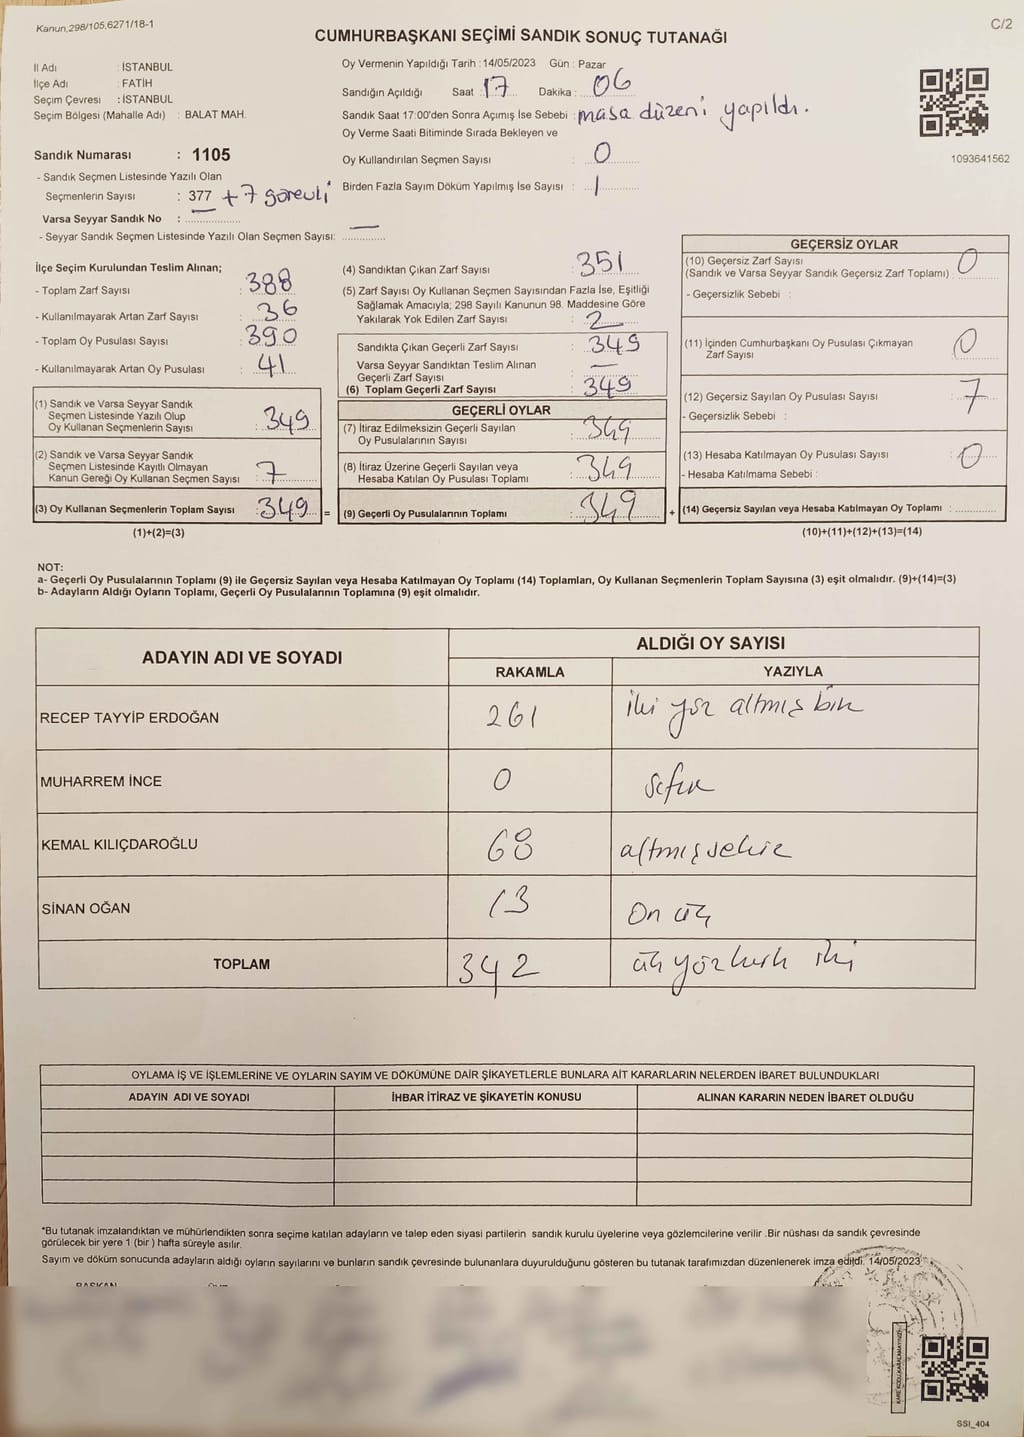 Kanun,298/105,6271/18-1
C/2
CUMHURBAŞKANI SEÇİMİ SANDIK SONUÇ TUTANAĞI
İl Adı : İSTANBUL
İlçe Adı : FATİH
Seçim Çevresi : İSTANBUL
Seçim Bölgesi (Mahalle Adı) : BALAT MAH.
Sandık Numarası : 1105
- Sandık Seçmen Listesinde Yazılı Olan
Seçmenlerin Sayısı : 377 + 7 görevli
Varsa Seyyar Sandık No : —
- Seyyar Sandık Seçmen Listesinde Yazılı Olan Seçmen Sayısı: —
Oy Vermenin Yapıldığı Tarih : 14/05/2023 Gün : Pazar
Sandığın Açıldığı Saat : 17 Dakika : 06
Sandık Saat 17:00'den Sonra Açımış İse Sebebi : masa düzeni yapıldı.
Oy Verme Saati Bitiminde Sırada Bekleyen ve
Oy Kullandırılan Seçmen Sayısı : 0
Birden Fazla Sayım Döküm Yapılmış İse Sayısı : 1
1093641562
İlçe Seçim Kurulundan Teslim Alınan;
- Toplam Zarf Sayısı : 388
- Kullanılmayarak Artan Zarf Sayısı : 36
- Toplam Oy Pusulası Sayısı : 390
- Kullanılmayarak Artan Oy Pusulası : 41
(1) Sandık ve Varsa Seyyar Sandık
Seçmen Listesinde Yazılı Olup
Oy Kullanan Seçmenlerin Sayısı : 349
(2) Sandık ve Varsa Seyyar Sandık
Seçmen Listesinde Kayıtlı Olmayan
Kanun Gereği Oy Kullanan Seçmen Sayısı : 7
(3) Oy Kullanan Seçmenlerin Toplam Sayısı : 349 =
(1)+(2)=(3)
(4) Sandıktan Çıkan Zarf Sayısı : 351
(5) Zarf Sayısı Oy Kullanan Seçmen Sayısından Fazla İse, Eşitliği
Sağlamak Amacıyla; 298 Sayılı Kanunun 98. Maddesine Göre
Yakılarak Yok Edilen Zarf Sayısı : 2
Sandıkta Çıkan Geçerli Zarf Sayısı : 349
Varsa Seyyar Sandıktan Teslim Alınan
Geçerli Zarf Sayısı : —
(6) Toplam Geçerli Zarf Sayısı : 349
GEÇERLİ OYLAR
(7) İtiraz Edilmeksizin Geçerli Sayılan
Oy Pusulalarının Sayısı : 349
(8) İtiraz Üzerine Geçerli Sayılan veya
Hesaba Katılan Oy Pusulası Toplamı : 349
(9) Geçerli Oy Pusulalarının Toplamı : 349 +
GEÇERSİZ OYLAR
(10) Geçersiz Zarf Sayısı : 0
(Sandık ve Varsa Seyyar Sandık Geçersiz Zarf Toplamı)
- Geçersizlik Sebebi :
(11) İçinden Cumhurbaşkanı Oy Pusulası Çıkmayan
Zarf Sayısı : 0
(12) Geçersiz Sayılan Oy Pusulası Sayısı : 7
- Geçersizlik Sebebi :
(13) Hesaba Katılmayan Oy Pusulası Sayısı : 0
- Hesaba Katılmama Sebebi :
(14) Geçersiz Sayılan veya Hesaba Katılmayan Oy Toplamı :
(10)+(11)+(12)+(13)=(14)
NOT:
a- Geçerli Oy Pusulalarının Toplamı (9) ile Geçersiz Sayılan veya Hesaba Katılmayan Oy Toplamı (14) Toplamları, Oy Kullanan Seçmenlerin Toplam Sayısına (3) eşit olmalıdır. (9)+(14)=(3)
b- Adayların Aldığı Oyların Toplamı, Geçerli Oy Pusulalarının Toplamına (9) eşit olmalıdır.
ADAYIN ADI VE SOYADI
ALDIĞI OY SAYISI
RAKAMLA YAZIYLA
RECEP TAYYİP ERDOĞAN 261 iki yüz altmış bir
MUHARREM İNCE 0 sıfır
KEMAL KILIÇDAROĞLU 68 altmış sekiz
SİNAN OĞAN 13 On üç
TOPLAM 342 üç yüz kırk iki
OYLAMA İŞ VE İŞLEMLERİNE VE OYLARIN SAYIM VE DÖKÜMÜNE DAİR ŞİKAYETLERLE BUNLARA AİT KARARLARIN NELERDEN İBARET BULUNDUKLARI
ADAYIN ADI VE SOYADI İHBAR İTİRAZ VE ŞİKAYETİN KONUSU ALINAN KARARIN NEDEN İBARET OLDUĞU
*Bu tutanak imzalandıktan ve mühürlendikten sonra seçime katılan adayların ve talep eden siyasi partilerin sandık kurulu üyelerine veya gözlemcilerine verilir .Bir nüshası da sandık çevresinde
görülecek bir yere 1 (bir ) hafta süreyle asılır.
Sayım ve döküm sonucunda adayların aldığı oyların sayılarını ve bunların sandık çevresinde bulunanlara duyurulduğunu gösteren bu tutanak tarafımızdan düzenlenerek imza edildi. 14/05/2023
BAŞKAN
SSI_404